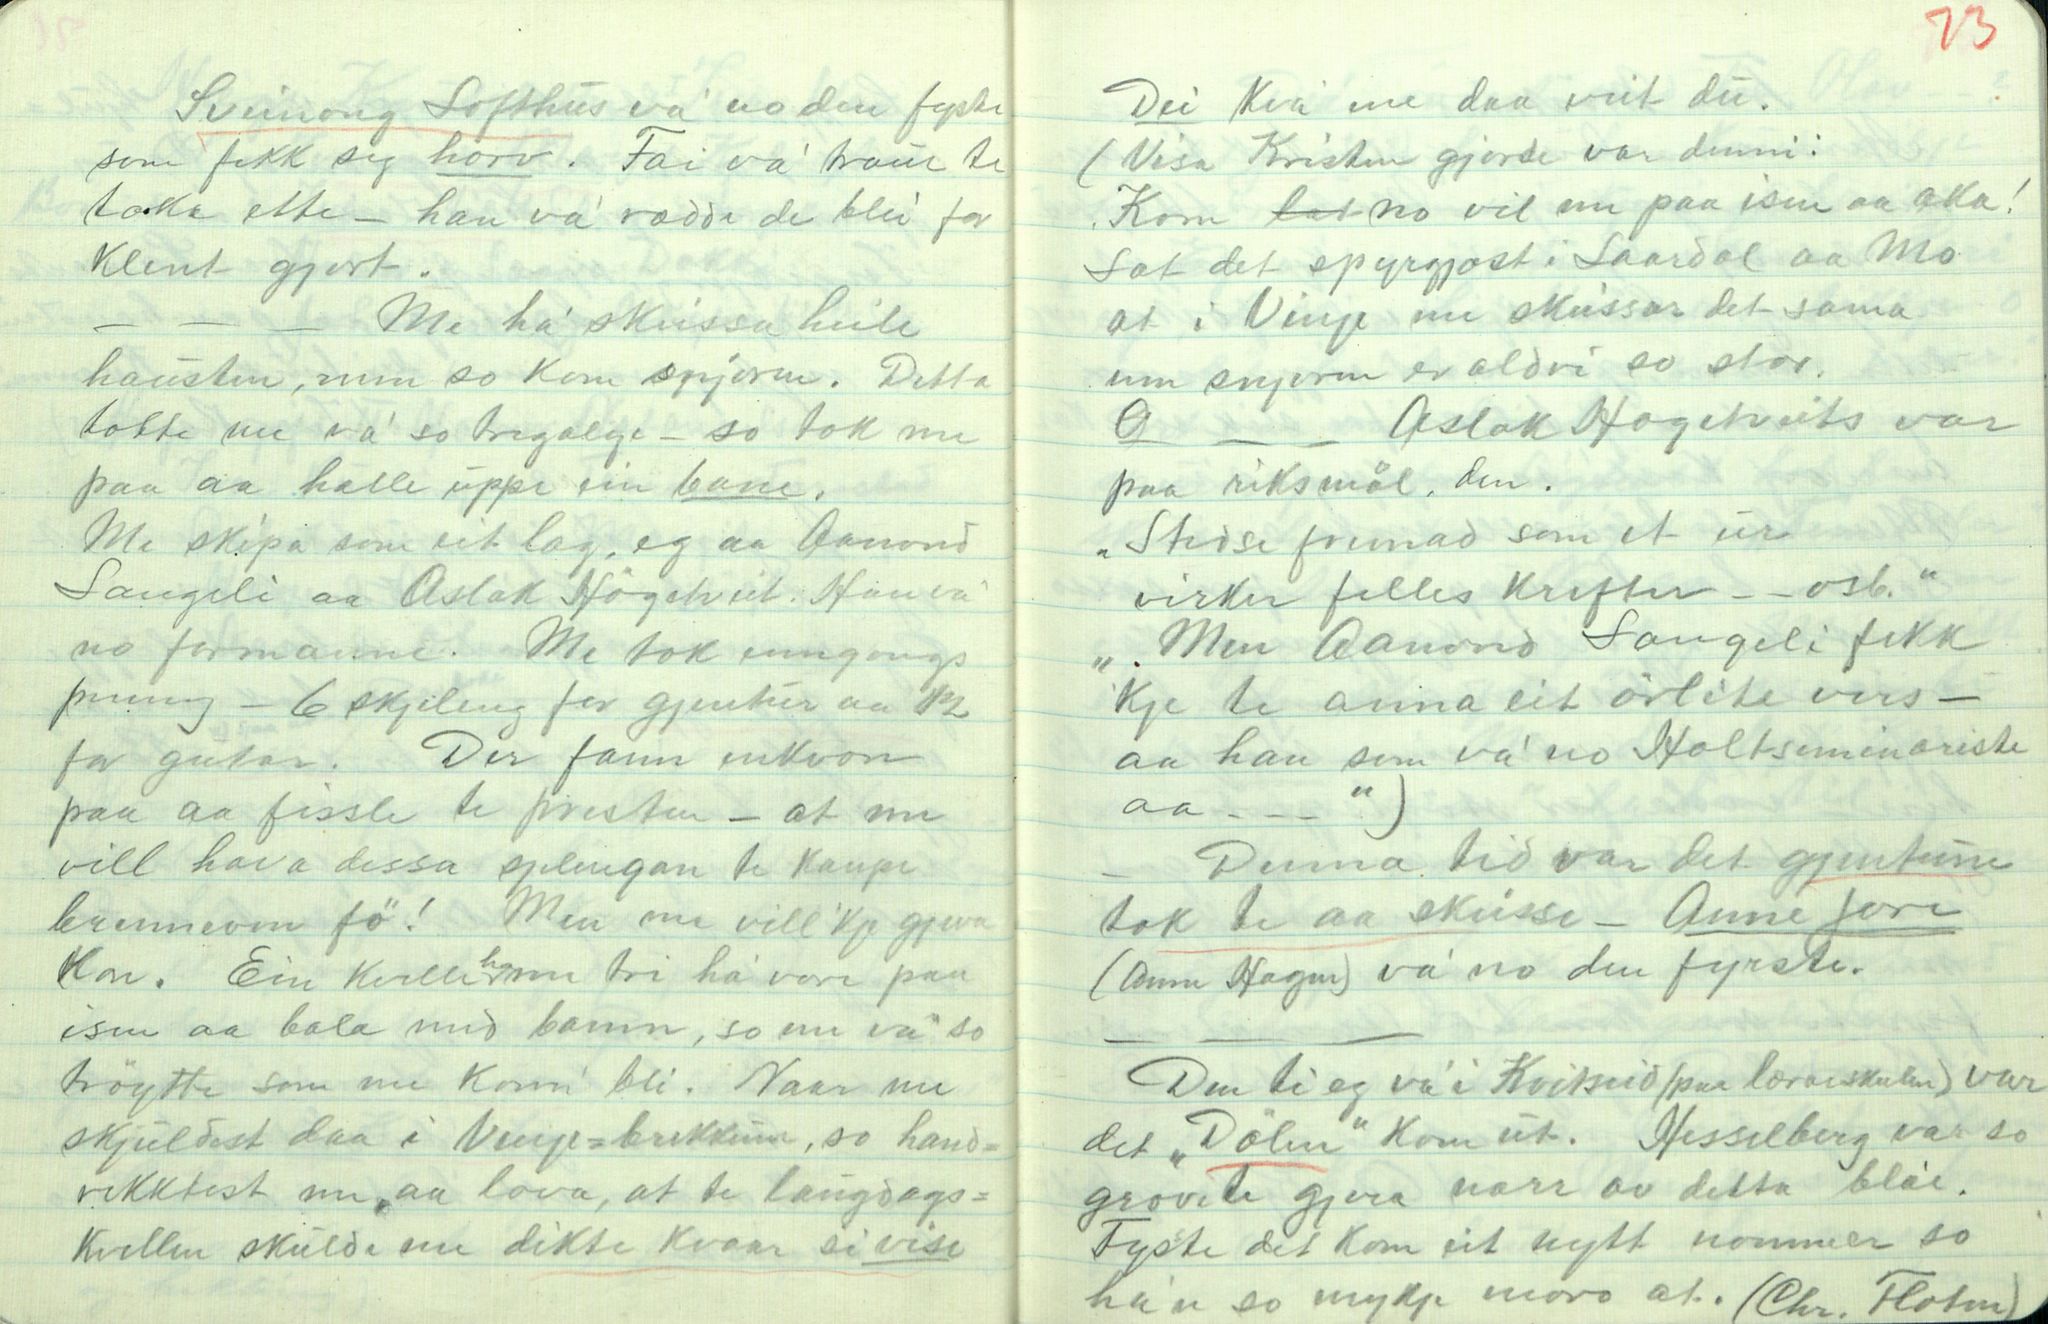 73
Sveinong Lofthus vá no den fyste
som fekk seg horv. Fai vá traue te
taka ette - han vá rædde de blei for
klent gjort.
- - - Me há skussa heile
hausten, men so kom snjoren. Detta
totte me vá so tregalge - so tok me
paa aa halle uppe ein bane.
Me skipa som eit lag, eg aa Aanond
Langeli aa Aslak Högetveit. Han vá
no formannen. Me tok eingongs
peneng - 6 skjileng for gjentur aa 12
for gutar. Der fann einkvon
paa aa fissle te presten - at me
vill hava dessa sjelengan te kaupe
brennevin fö! Men me vill'kje gjeva
kon. Ein kvelle há me tri há vore paa
isen aa bala med banen, so me vá so
tröytte som me konn' bli. Naar me
skjuldest daa i Vinje=brekkune, so hand=
rekktest me, aa lova, at te laugdags=
kvellen skulde me dikte kvaar si vise
Dei kvá me daa veit du.
(Visa Kristen gjorde var denni:
Kom lat no vil me paa isen aa aka!
Lat det spyrgjast i Laardal aa Mo
at i Vinje me skussar det sama
um snjoren er aldri so stor.
O - - - Aslak Hogetveits var
paa riksmål, den.
"Stedse fremad som et ur
virker felles krefter - - osb."
". Men Aanond Langeli fekk
kje te anna eit örlite vers -
aa han som vá no Holt-seminariste
aa - - - ")
- Denna tid var det gjentune
tok te aa skusse - Anne Jore
(Anne Hagen) vá no den fyrste.
Den ti eg vá i Kvitseid (paa lærarskulen) var
det "Dölen" kom ut. Hesselberg var so
grov te gjera narr av detta blåe.
Fyste det kom eit nytt nommer so
há'n so mykje moro at. (Chr. Floten)